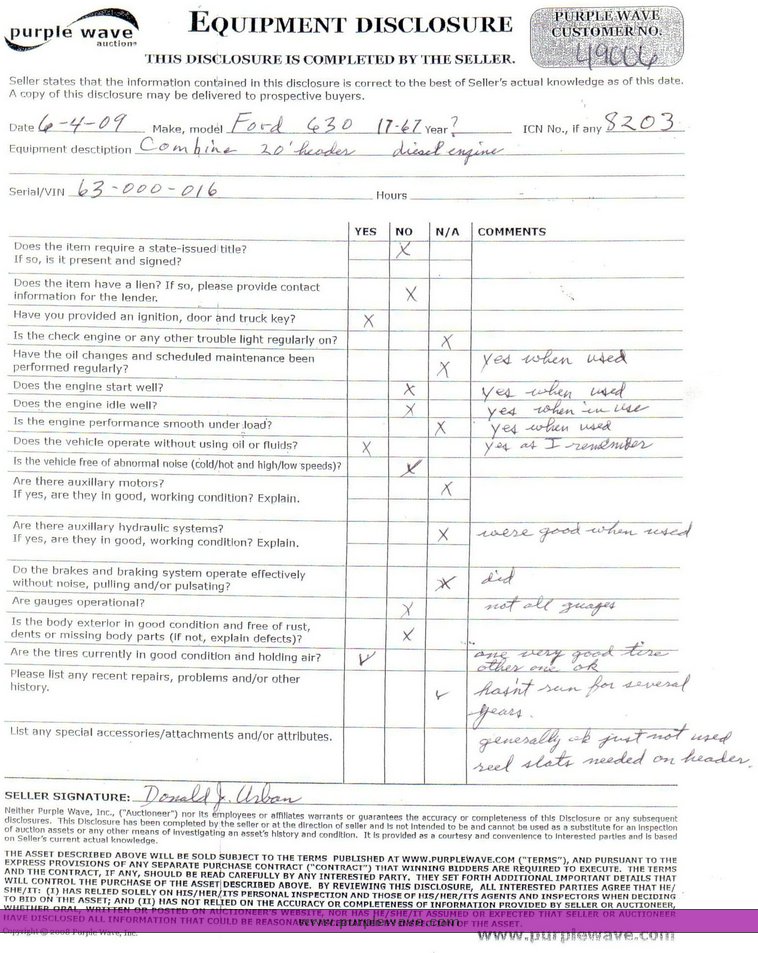 purple wave
auction®
EQUIPMENT DISCLOSURE
PURPLE WAVE
CUSTOMER NO.
49006
THIS DISCLOSURE IS COMPLETED BY THE SELLER.
Seller states that the information contained in this disclosure is correct to the best of Seller's actual knowledge as of this date.
A copy of this disclosure may be delivered to prospective buyers.
Date 6-4-09 Make, model Ford 630 17-67 Year ? ICN No., if any 8203
Equipment desctiption Combine 20' header diesel engine
Serial/VIN 63-000-016 Hours
YES NO N/A COMMENTS
Does the item require a state-issued title? X
If so, is it present and signed?
Does the item have a lien? If so, please provide contact
information for the lender. X
Have you provided an ignition, door and truck key? X
Is the check engine or any other trouble light regularly on? X
Have the oil changes and scheduled maintenance been
performed regularly? X yes when used
Does the engine start well? X yes when used
Does the engine idle well? X yes when in use
Is the engine performance smooth under load? X yes when used
Does the vehicle operate without using oil or fluids? X yes as I remember
Is the vehicle free of abnormal noise (cold/hot and high/low speeds)? X
Are there auxillary motors? X
If yes, are they in good, working condition? Explain.
Are there auxillary hydraulic systems? X were good when used
If yes, are they in good, working condition? Explain.
Do the brakes and braking system operate effectively
without noise, pulling and/or pulsating? X did
Are gauges operational? X not all guages
Is the body exterior in good condition and free of rust,
dents or missing body parts (if not, explain defects)? X
Are the tires currently in good condition and holding air? ✓ one very good tire
other one ok
Please list any recent repairs, problems and/or other
history. ✓ hasn't run for several
years.
List any special accessories/attachments and/or attributes. generally ok just not used
reel slats needed on header.
SELLER SIGNATURE: Donald J. Urban
Neither Purple Wave, Inc., ("Auctioneer") nor its employees or affiliates warrants or guarantees the accuracy or completeness of this Disclosure or any subsequent
disclosures. This Disclosure has been completed by the seller or at the direction of seller and is not intended to be and cannot be used as a substitute for an inspection
of auction assets or any other means of investigating an asset's history and condition. It is provided as a courtesy and convenience to interested parties and is based
on Seller's current actual knowledge.
THE ASSET DESCRIBED ABOVE WILL BE SOLD SUBJECT TO THE TERMS PUBLISHED AT WWW.PURPLEWAVE.COM ("TERMS"), AND PURSUANT TO THE
EXPRESS PROVISIONS OF ANY SEPARATE PURCHASE CONTRACT ("CONTRACT") THAT WINNING BIDDERS ARE REQUIRED TO EXECUTE. THE TERMS
AND THE CONTRACT, IF ANY, SHOULD BE READ CAREFULLY BY ANY INTERESTED PARTY. THEY SET FORTH ADDITIONAL IMPORTANT DETAILS THAT
WILL CONTROL THE PURCHASE OF THE ASSET DESCRIBED ABOVE. BY REVIEWING THIS DISCLOSURE, ALL INTERESTED PARTIES AGREE THAT HE/
SHE/IT: (I) HAS RELIED SOLELY ON HIS/HER/ITS PERSONAL INSPECTION AND THOSE OF HIS/HER/ITS AGENTS AND INSPECTORS WHEN DECIDING
TO BID ON THE ASSET; AND (II) HAS NOT RELIED ON THE ACCURACY OR COMPLETENESS OF INFORMATION PROVIDED BY SELLER OR AUCTIONEER,
WHETHER ORAL, WRITTEN OR POSTED ON AUCTIONEER'S WEBSITE, NOR HAS HE/SHE/IT ASSUMED OR EXPECTED THAT SELLER OR AUCTIONEER
HAVE DISCLOSED ALL INFORMATION THAT COULD BE INSPECTION OF THE ASSET.
www.purplewave.com
Copyright © 2008 Purple Wave, Inc.
www.purplewave.com